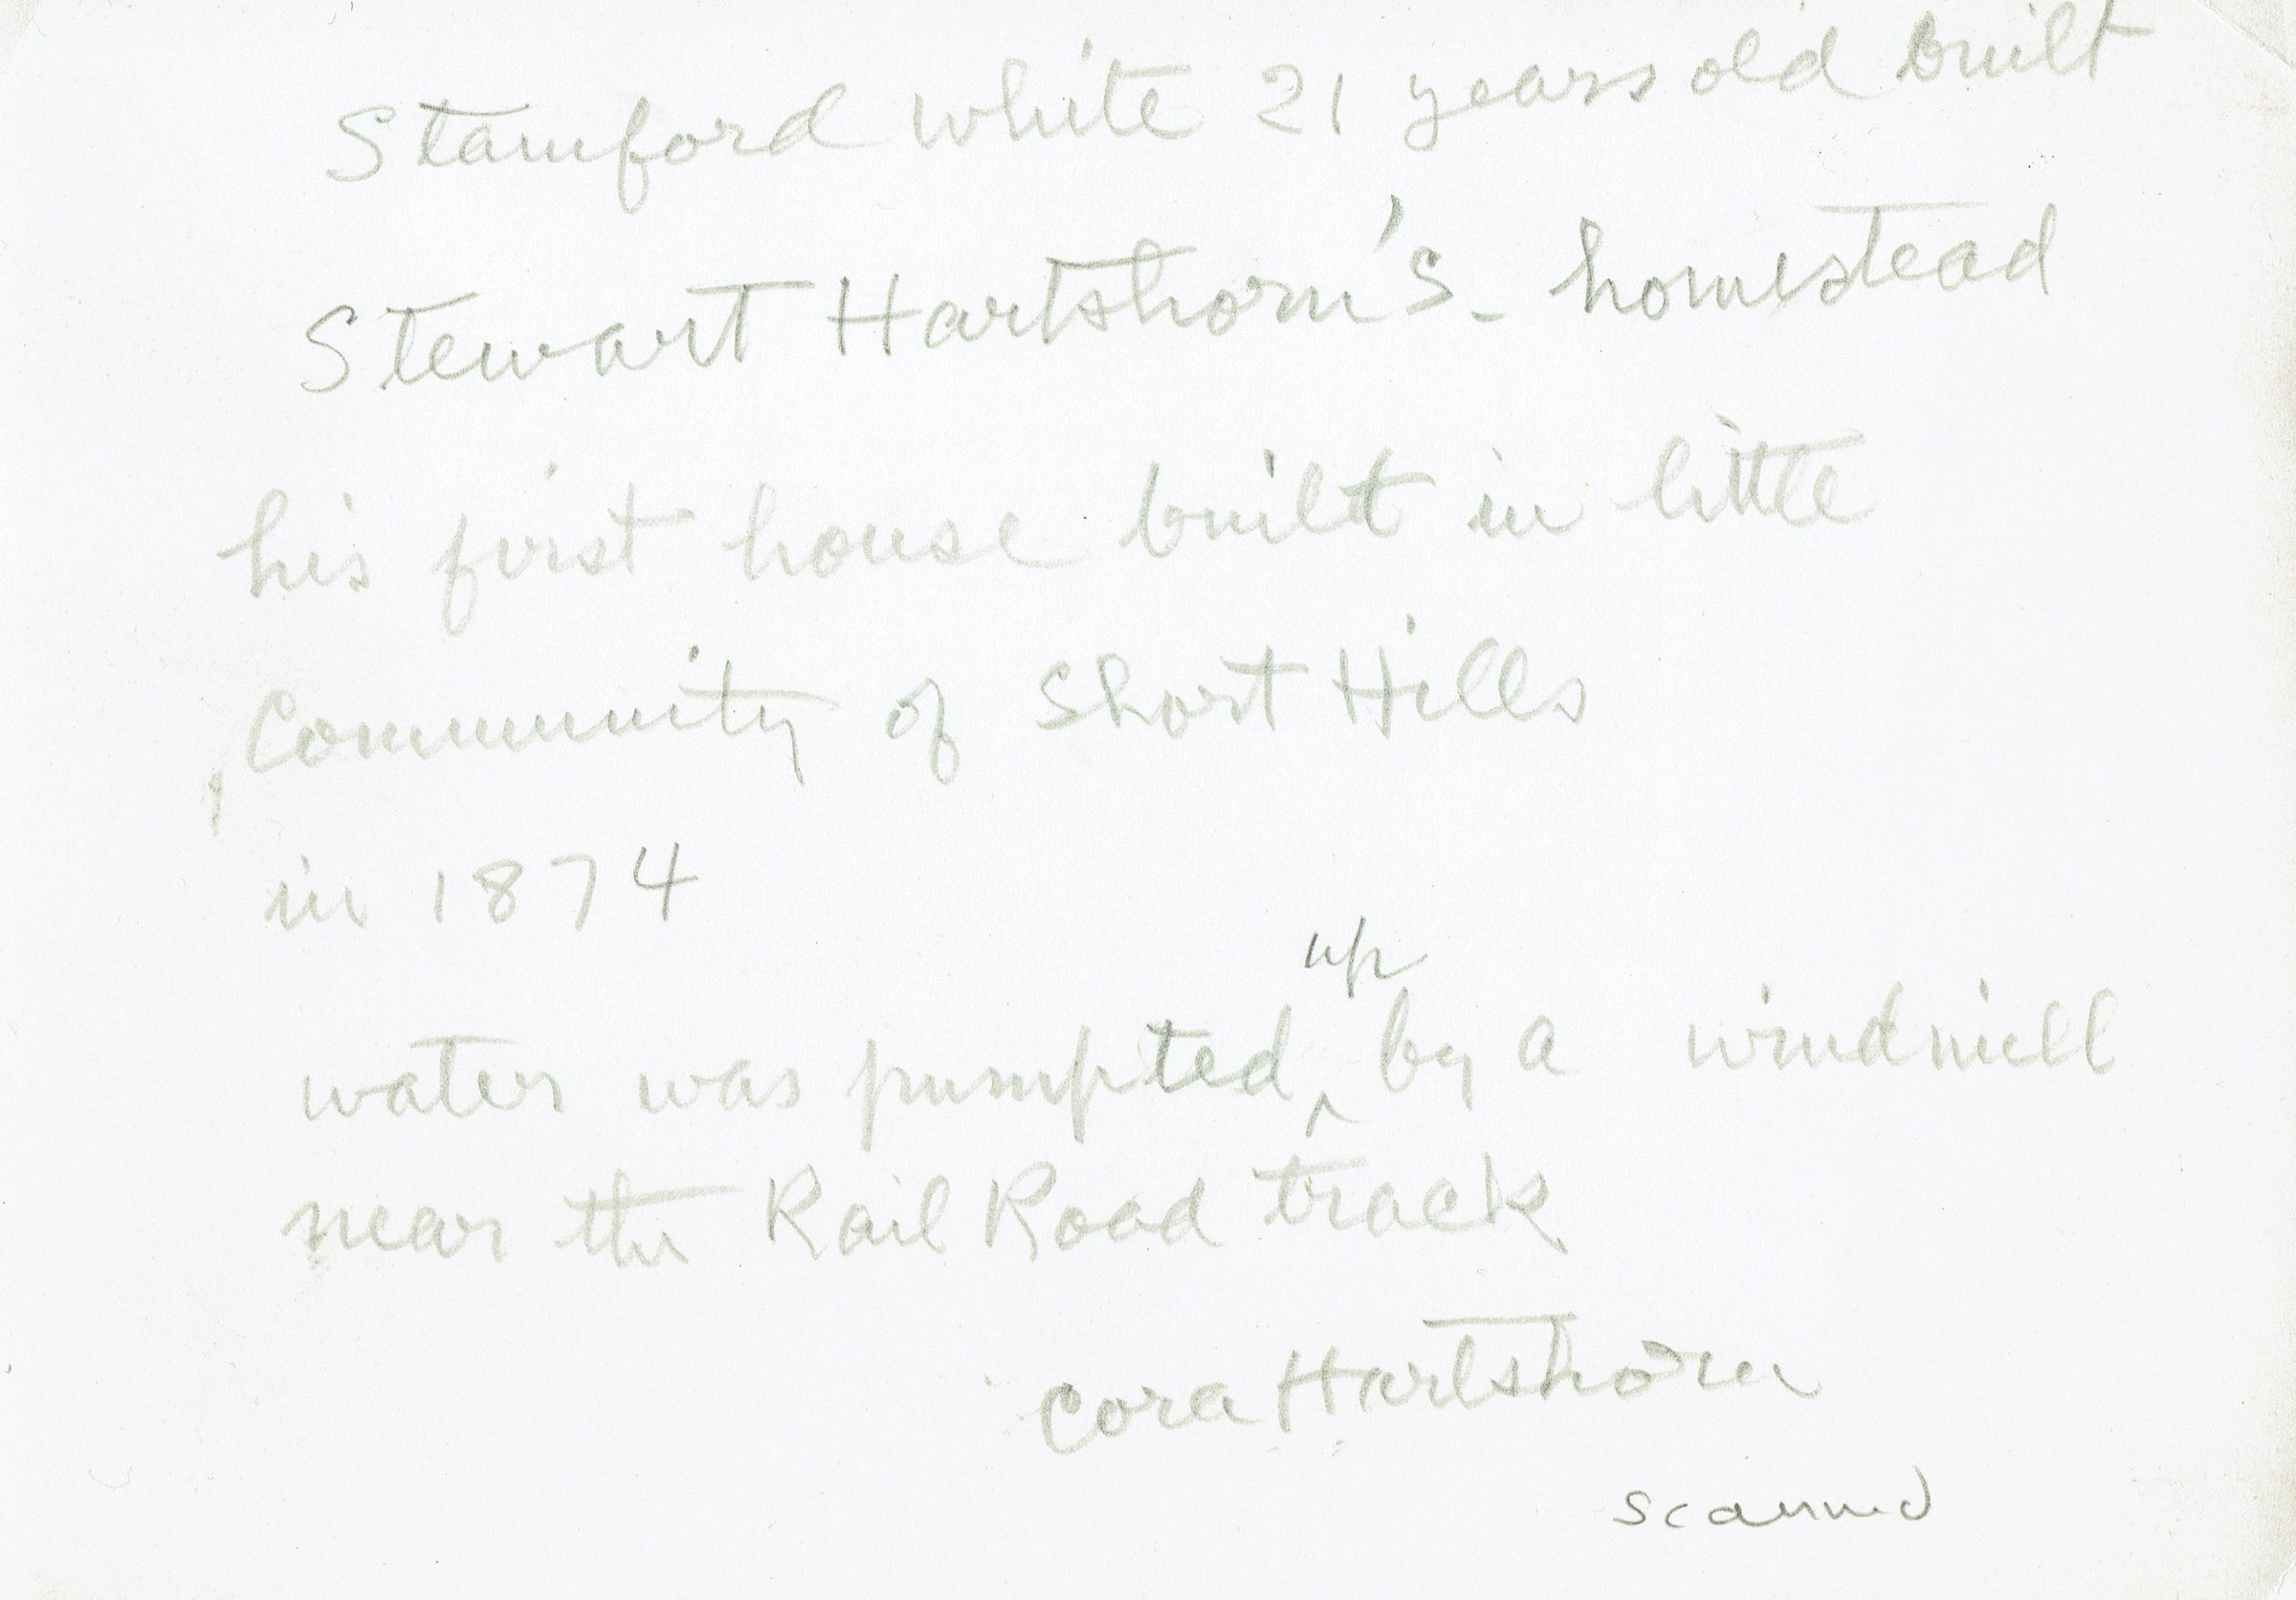 Stamford white 21 years old built
Stewart Hartshorn's - homestead
his first house built in little
Community of Short Hills
in 1874
up
water was pumpted ^ by a windmill
near the Rail Road track
Cora Hartshorn
scanned